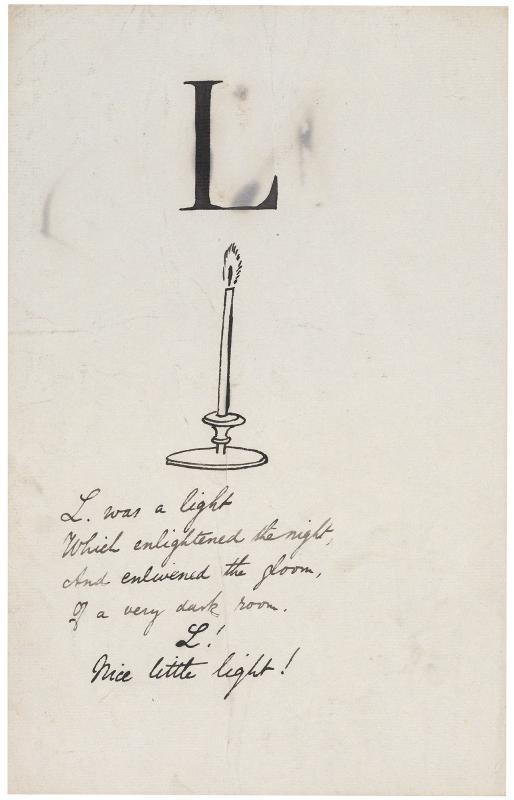 L
L. was a light
Which enlightened the night,
And enlivened the gloom,
Of a very dark room.
L!
Nice little light!